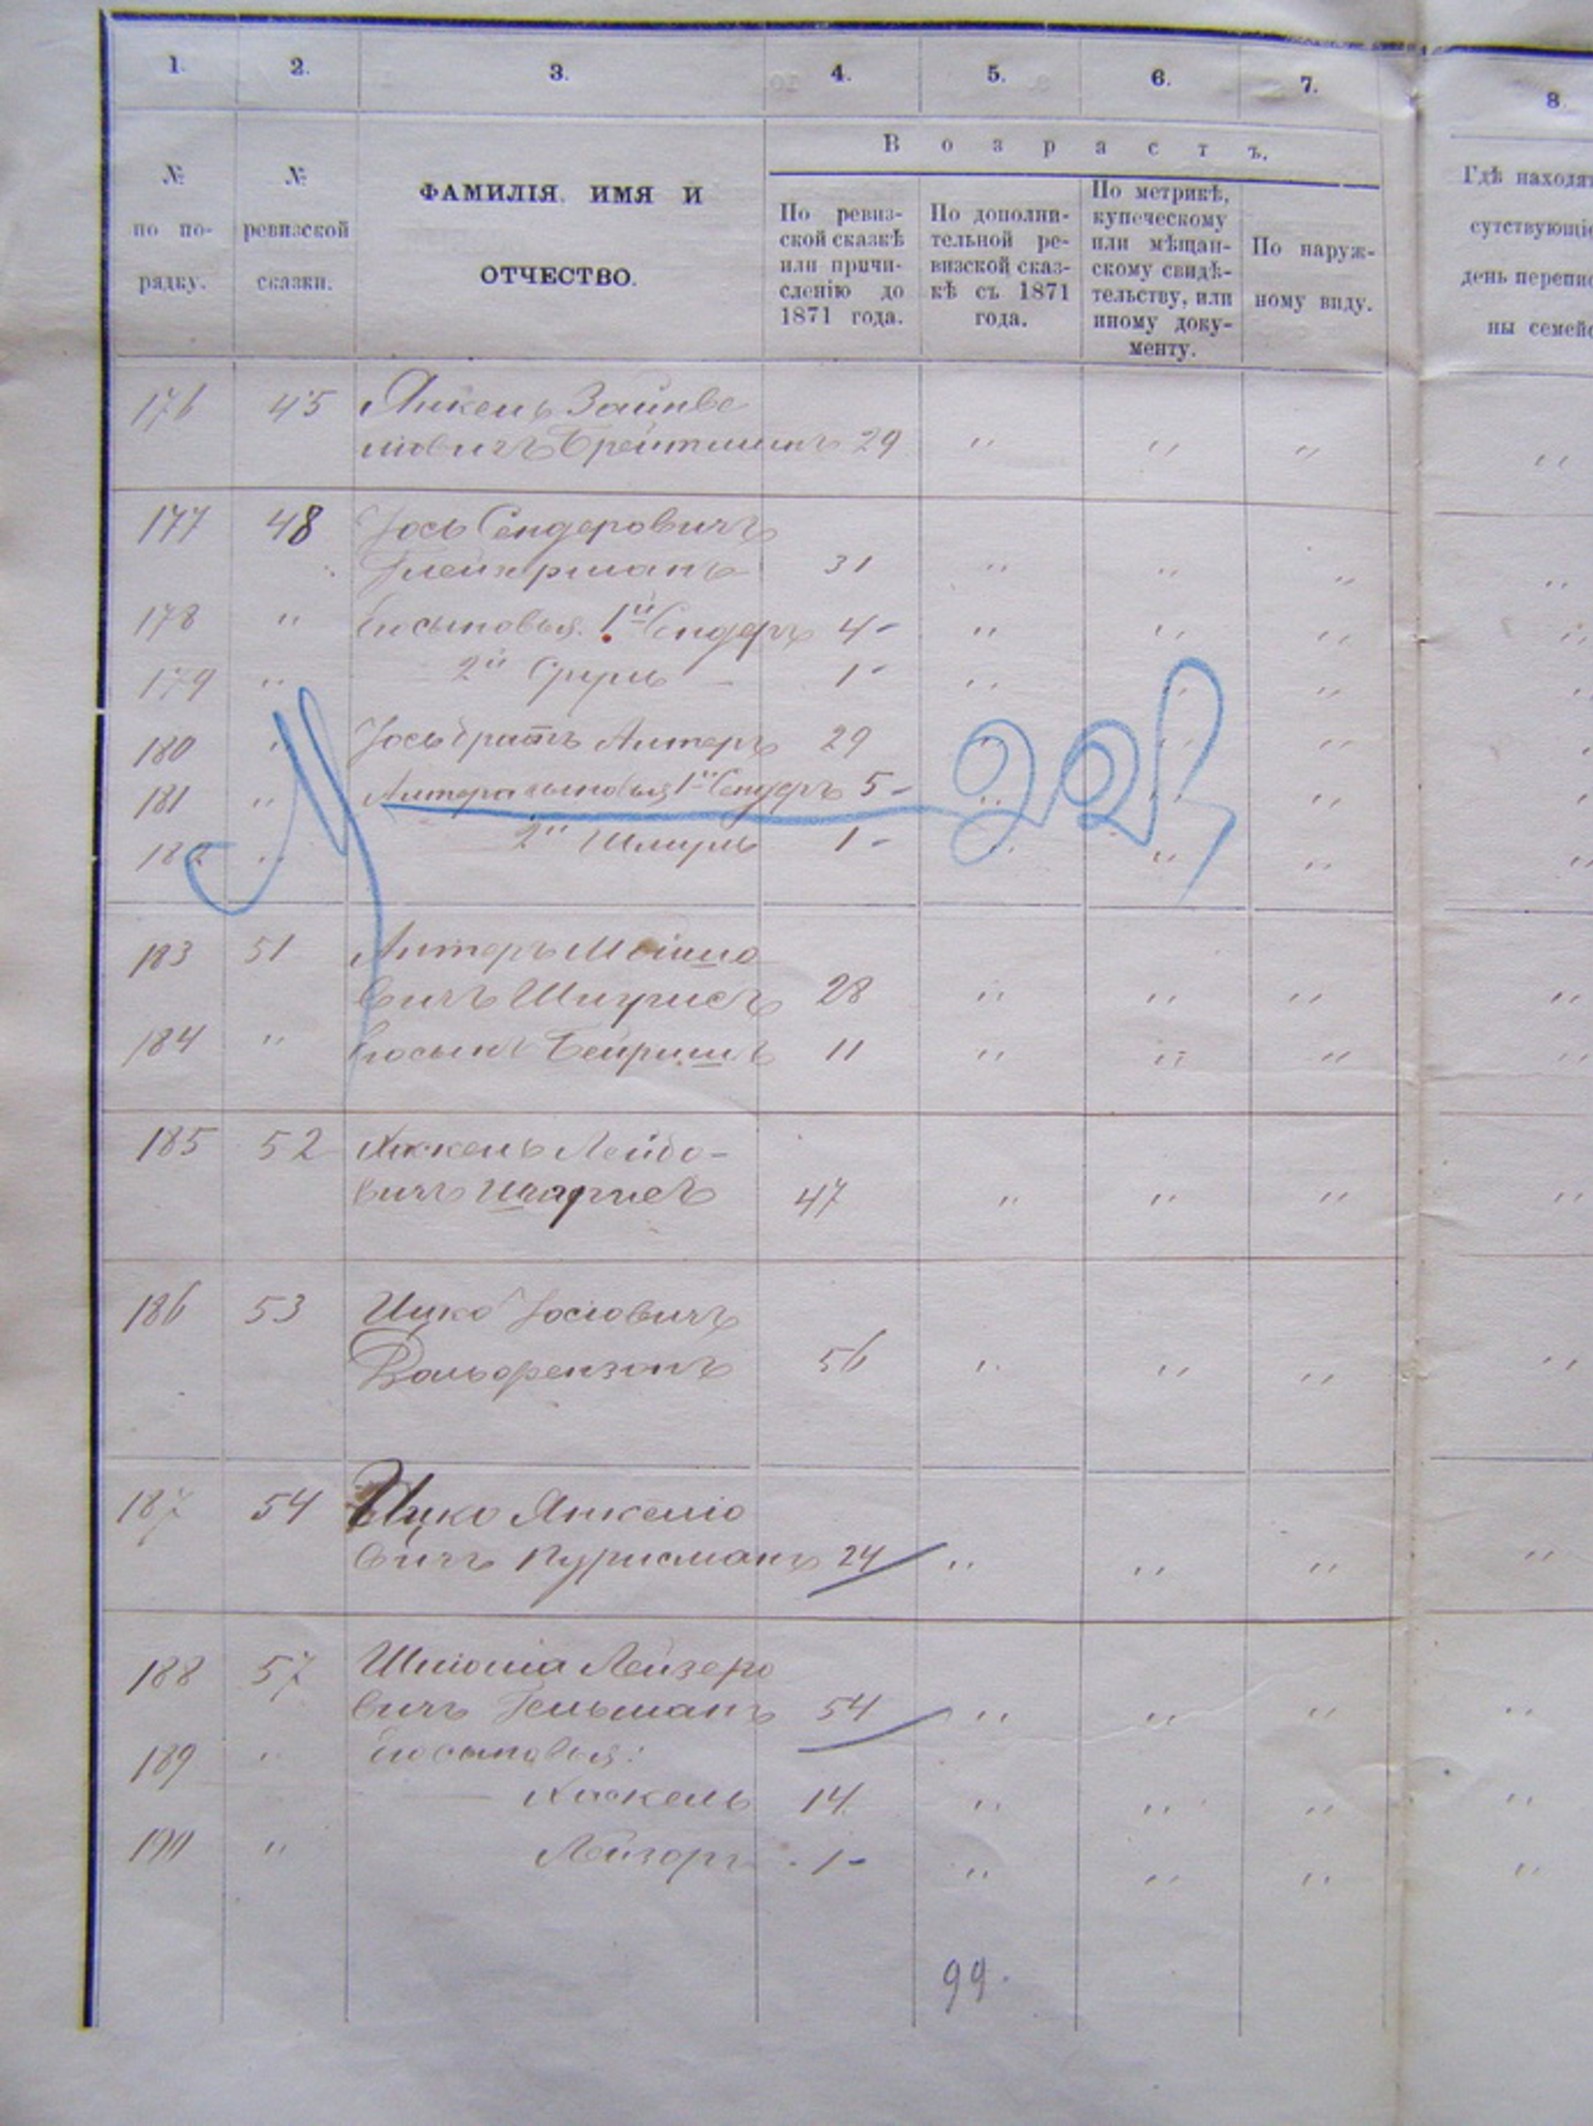 1. 2. 3. 4. 5. 6. 7. 8.
В о з р а с т ъ.
№ по по- рядку.
№ ревизской сказки.
ФАМИЛІЯ, ИМЯ И
ОТЧЕСТВО.
По ревиз-
ской сказкѣ
или причи-
сленію до
1871 года.
По дополни-
тельной ре-
визской сказ-
кѣ съ 1871
года.
По метрикѣ,
купеческому
или мѣщан-
скому свидѣ-
тельству, или
иному доку-
менту.
По наруж-
ному виду.
Гдѣ находят
сутствующіе
день перепис
ны семейс
176 45 Янкель Зайнве
ліовичъ 29 " " " "
177 48 Іось Сендеровичъ
Глейзерманъ 31 " " " "
178 " Его сыновья: 1й Сендеръ 4 - " " " "
179 " 2й Сруль 1 - " " " "
180 " Іось братъ Алтеръ 29 " " " "
181 " Алтера сыновья 1й Сендеръ 5 - " " " "
182 " 2й Шмуль 1 - " " " "
183 51 Алтеръ Мошко
вичъ 28 " " " "
184 " Его сынъ Бейришъ 11 " " " "
185 52 Хаскель Лейбо-
вичъ 47 " " " "
186 53 Ицко Іосіовичъ
Вольфензонъ 56 " " " "
187 54 Ицко Янкеліо
вичъ Пурисманъ 24 " " " "
188 57 Шліома Лейзеро
вичъ Гельманъ 54 " " " "
189 " Его сыновья:
Хаскель 14 " " " "
190 " Лейзоръ 1 - " " " "
99.